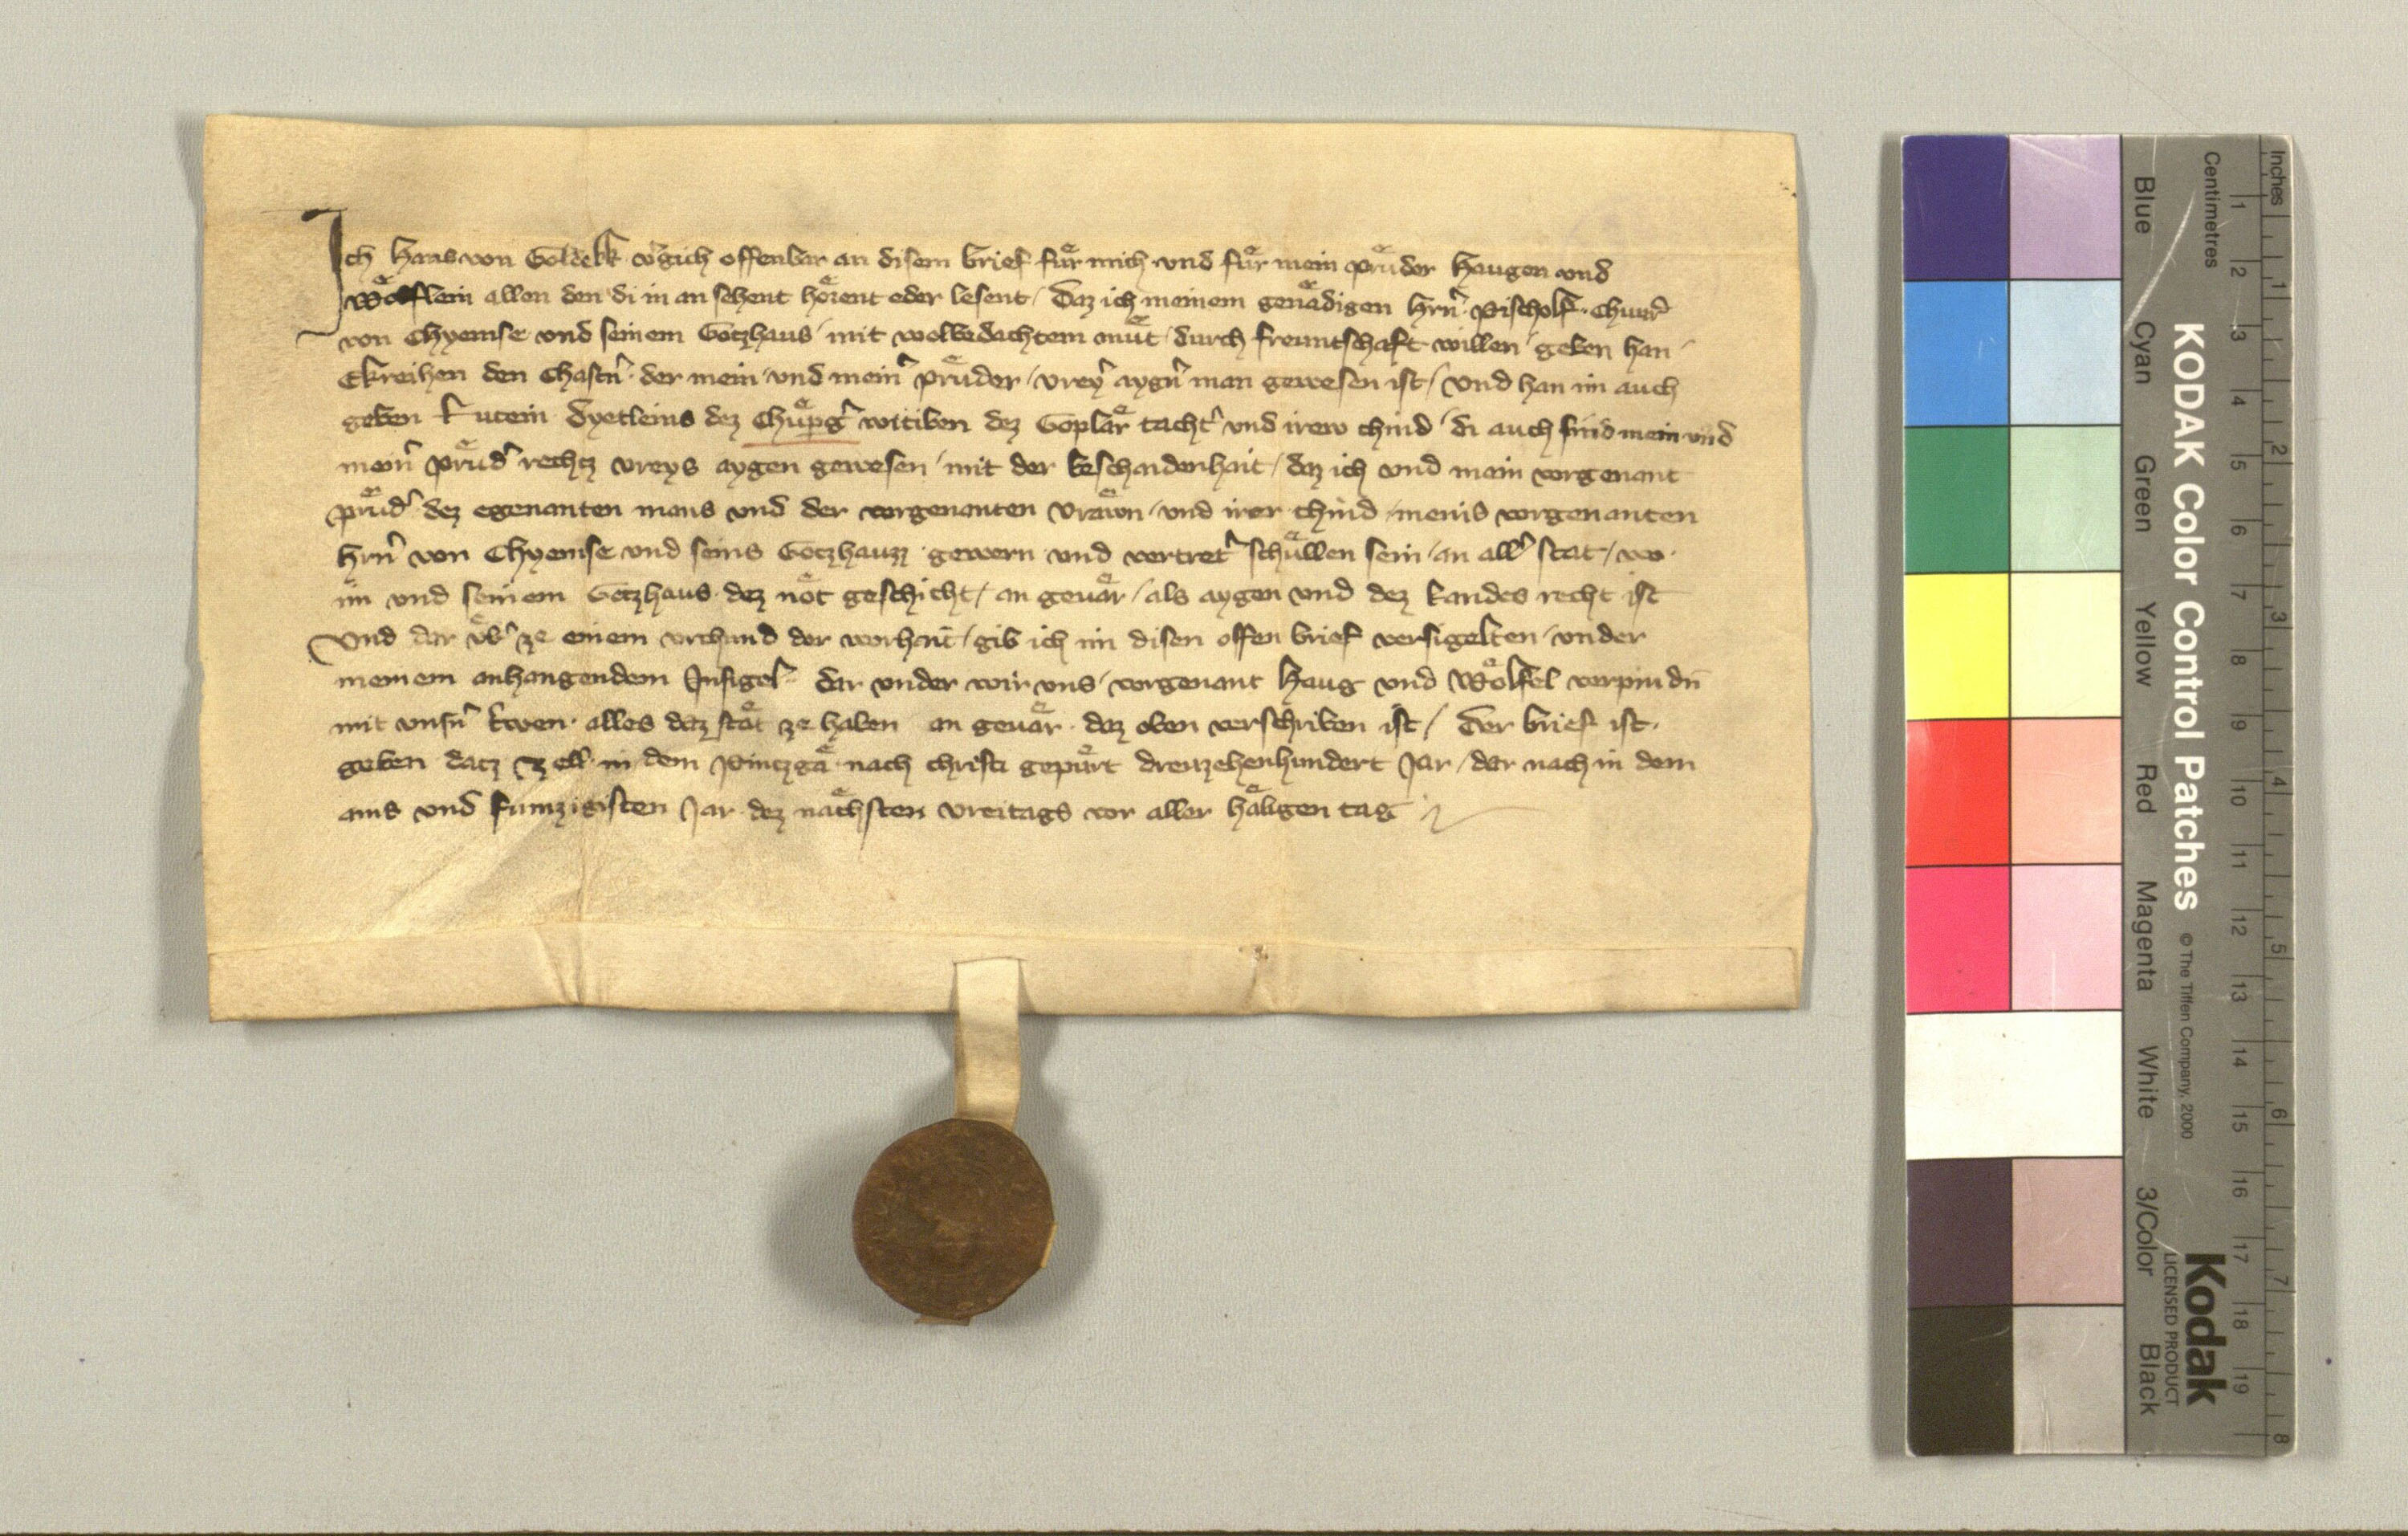 Ich Hans von Goldekk v᷑gich offenbar an disem brief fuͤr mich vnd fuͤr mein pruͤder Haugen vnd
Woͤlflein allen den di in an sehent hoͤrent oder lesent / Daz ich meinem genaͤdigen hrn᷑ Pischolf Chunr᷑
von Chyemse vnd seinem Gotzhaus / mit wolbedachtem muͤt / durch freuntschaft willen / geben han
Ekreihen den Chastn᷑ der mein / vnd mein᷑ pruͤder / vrey᷑ aygn᷑ man gewesen ist / Vnd han im auch
geben Dyetleins dez Chuͤpg᷑ witiben dez Goplaͤr tacht᷑ vnd irew chind / di auch sind mein vnd
mein᷑ pruͤd᷑ rechtz vreys aygen gewesen / mit der beschaidenhait / daz ich vnd mein vorgenant
pruͤd᷑ dez egenanten mans vnd der vorgenanten vraͤwn / vnd irer chind / meins vorgenanten
hrn᷑ von Chyemse vnd seins Gotzhauzz gewern vnd vertret᷑ schuͤllen sein / an all᷑ stat / wo
im vnd seinem Gotzhaus dez noͤt geschicht / an geuaͤr / als aygen vnd dez Landes recht ist
Vnd dar vͤb᷑ ze einem vrchund der worhait / gib ich im disen offen brief versigelten / vnder
meinem anhangendem Insigel dar vnder wir vns / vorgenant Haug vnd Woͤlfel verpindn̄
mit vnsn᷑ trwen alles daz staͤt ze haben an geuaͤr daz oben verschriben ist / Der brief ist
geben datz Zell in dem Pintzgaͤ nach christi gepuͤrt dreuzehenhundert Jar / dar nach in dem
ains vnd fumzigisten Jar dez naͤchsten vreitags vor aller haͤligen tag
KODAK Color Control Patches
© The Tiffen Company, 2000
Kodak
LICENSED PRODUCT
Inches
Centimetres
Blue
Cyan
Green
Yellow
Red
Magenta
White
3/Color
Black
1 2 3 4 5 6 7 8 9 10 11 12 13 14 15 16 17 18 19
1 2 3 4 5 6 7 8